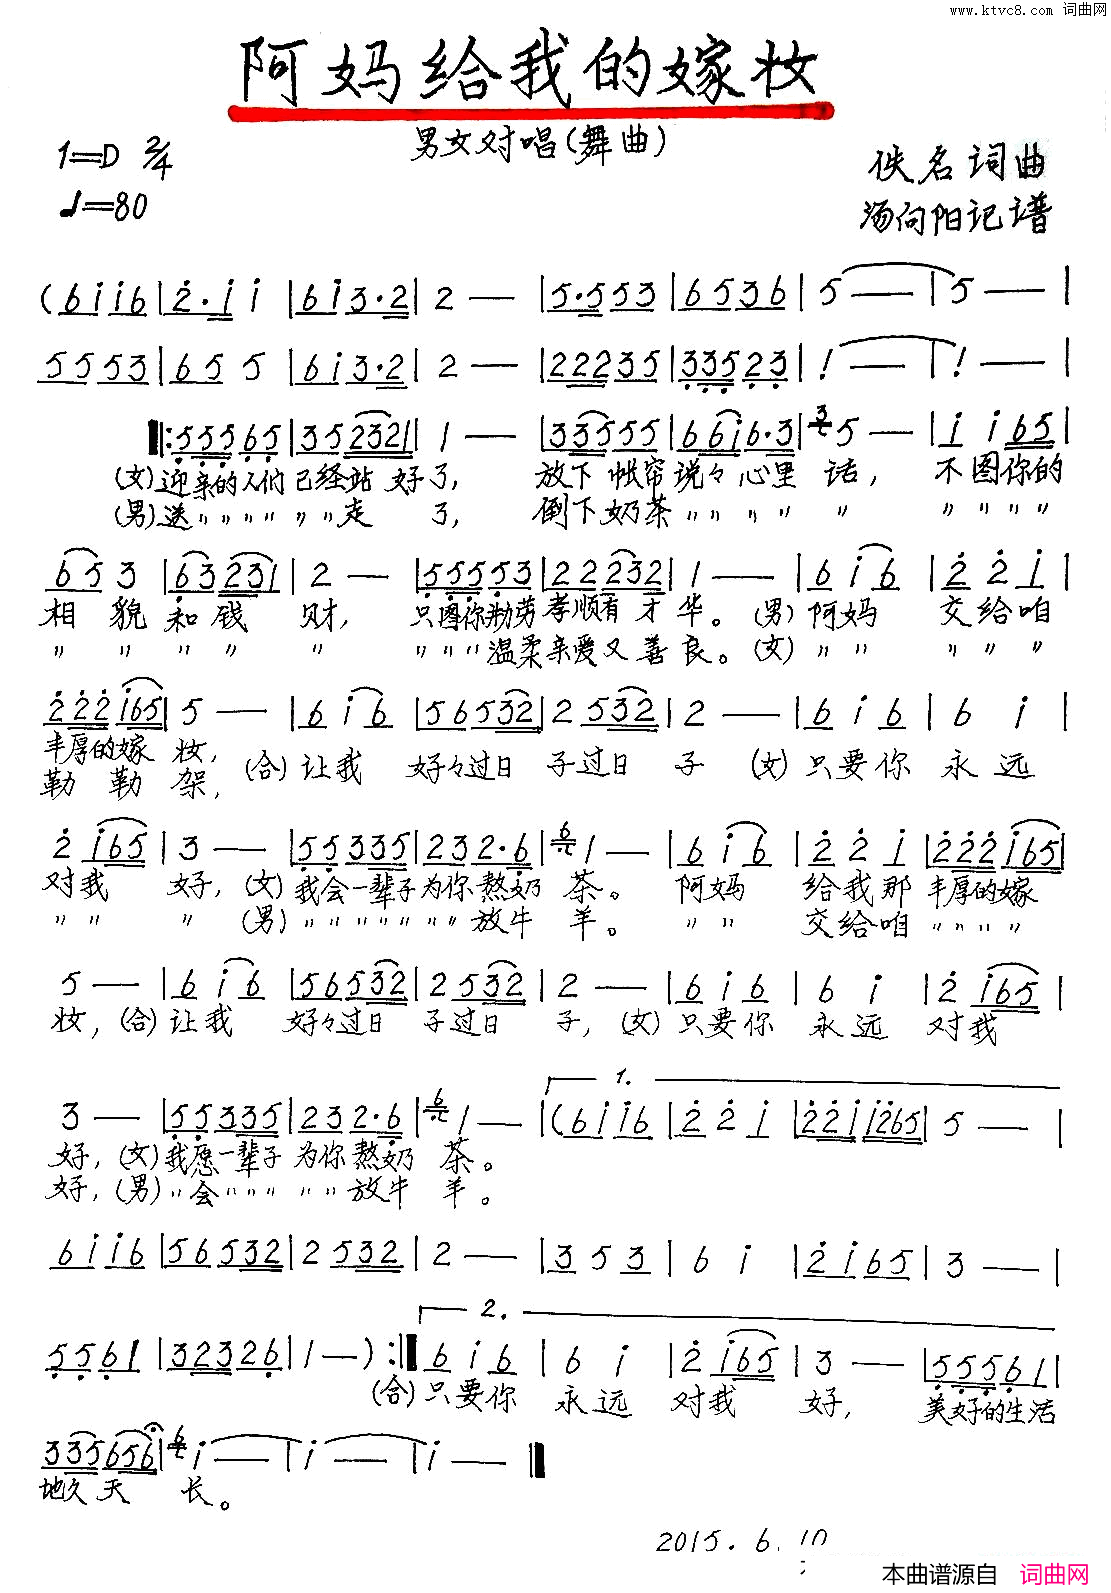 www.ktvc8.com 词曲网
阿妈给我的嫁妆
男女对唱(舞曲)
1=D 2/4
佚名词曲
♩=80
汤向阳记谱
(6 i i 6 | 2·i i | 6 i 3·2 | 2 — | 5·5 5 3 | 6 5 3 6 | 5 — | 5 — |
5 5 5 3 | 6 5 5 | 6 i 3·2 | 2 — | 2 2 2 3 5 | 3 3 5 2 3 | 1 — | 1 — |
|: 5 5 5 6 5 | 3 5 2 3 2 1 | 1 — | 3 3 5 5 5 | 6 6 i 6·3 | 5 — | i i 6 5 |
(女)迎亲的人们 已经站 好了, 放下 帐帘说々心里 话, 不图你的
(男)送〃〃〃〃〃〃走 了, 倒下奶茶〃〃〃〃 〃 〃〃〃〃
6 5 3 | 6 3 2 3 1 | 2 — | 5 5 5 5 3 | 2 2 2 3 2 | 1 — | 6 i 6 | 2 2 i |
相 貌 和 钱 财, 只图你勤劳孝顺有才华。(男)阿妈 交给咱
〃 〃 〃 〃 〃 〃〃〃温柔亲爱又善良。(女)〃〃 〃〃〃
2 2 2 i 6 5 | 5 — | 6 i 6 | 5 6 5 3 2 | 2 5 3 2 | 2 — | 6 i 6 | 6 i |
丰厚的嫁 妆, (合)让我 好々过日 子过日 子 (女)只要你 永远
勒 勒 架,
2 i 6 5 | 3 — | 5 5 3 3 5 | 2 3 2·6 | 1 — | 6 i 6 | 2 2 i | 2 2 2 i 6 5 |
对我 好, (女)我会一辈子为你熬奶 茶。 阿妈 给我那 丰厚的嫁
〃〃 〃 (男)〃〃〃〃〃〃〃放牛 羊。 〃〃 交给咱〃〃〃〃
5 — | 6 i 6 | 5 6 5 3 2 | 2 5 3 2 | 2 — | 6 i 6 | 6 i | 2 i 6 5 |
妆,(合)让我 好々过日 子过日 子,(女)只要你 永远 对我
3 — | 5 5 3 3 5 | 2 3 2·6 | 1 — | 1. (6 i i 6 | 2 2 i | 2 2 i i 2 6 5 | 5 — |
好,(女)我愿一辈子 为你熬奶 茶。
好,(男)〃会〃〃〃 〃〃放牛 羊。
6 i i 6 | 5 6 5 3 2 | 2 5 3 2 | 2 — | 3 5 3 | 6 i | 2 i 6 5 | 3 — |
5 5 6 1 | 3 2 3 2 6 | 1 — ) :| 2. 6 i 6 | 6 i | 2 i 6 5 | 3 — | 5 5 5 6 1 |
(合)只要你 永远 对我 好, 美好的生活
3 3 5 6 5 6 | i — | i — | i — |
地久天 长。
2015.6.10
本曲谱源自 词曲网